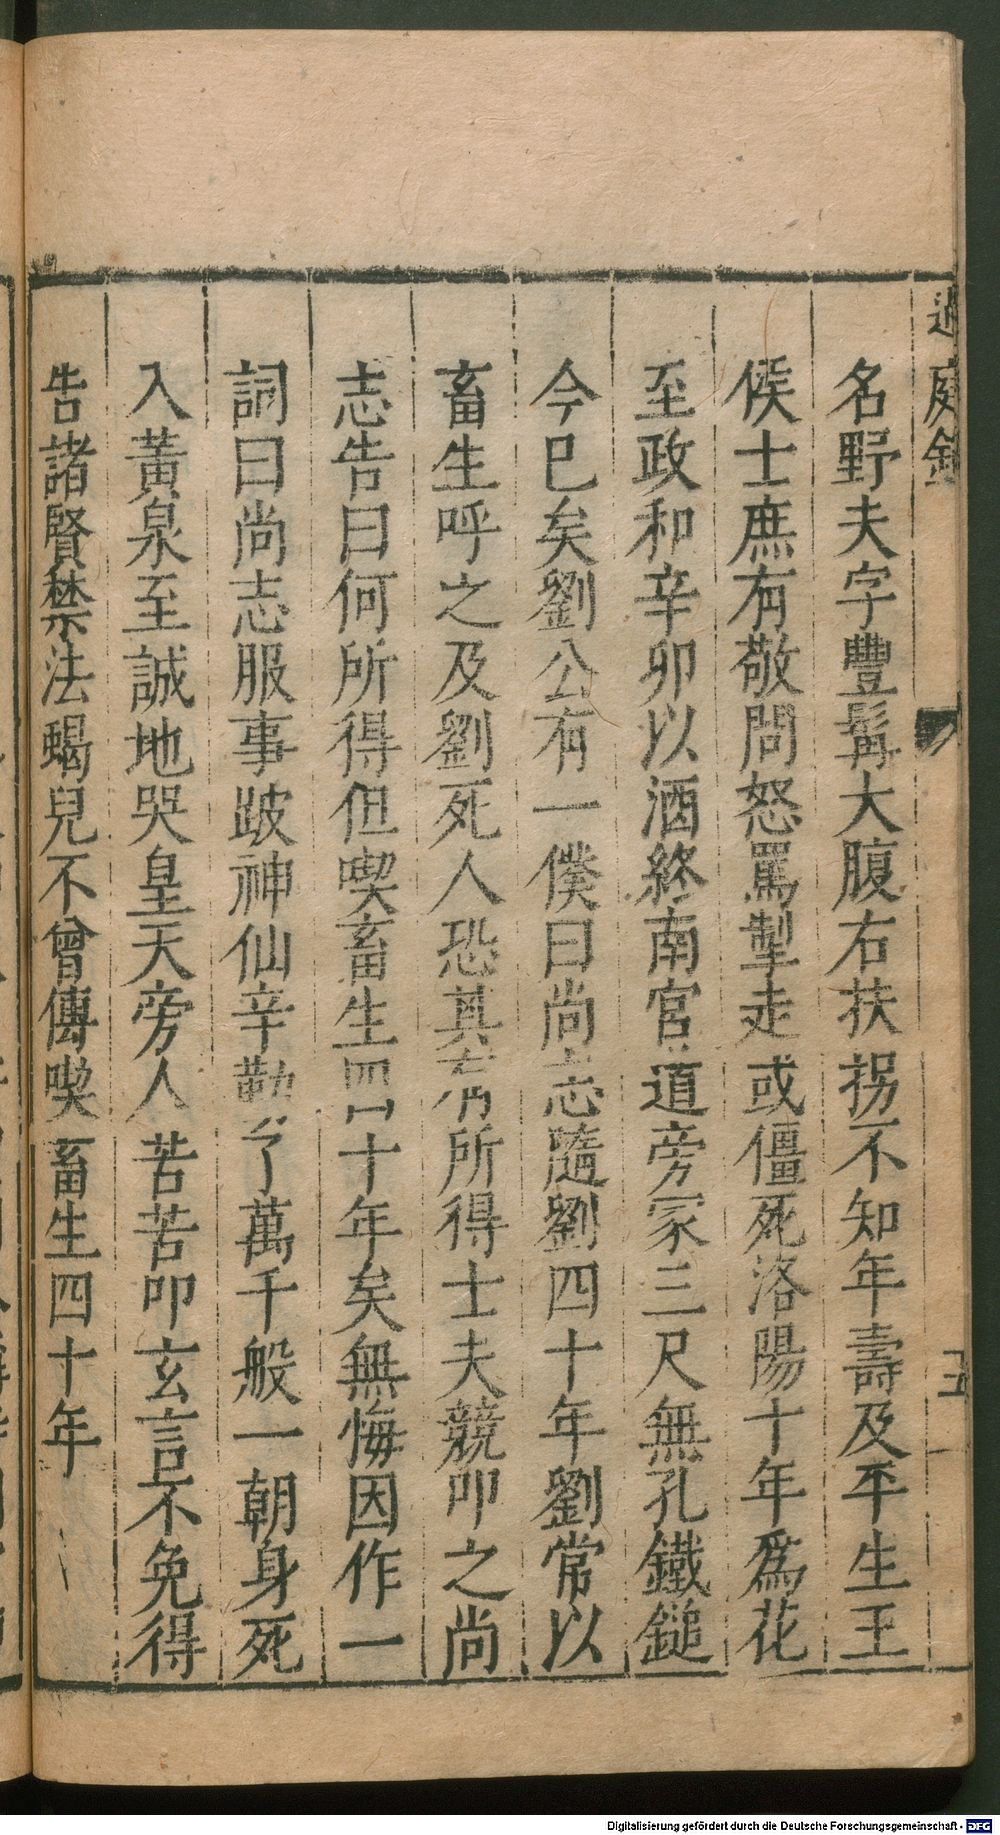 過庭錄
五
名野夫字豐髯大腹右扶拐不知年壽及平生王
侯士庶有敬問怒罵掣走或僵死洛陽十年爲花
至政和辛卯以酒終南宮道旁冢三尺無孔鐵鎚
今巳矣劉公有一僕曰尚志隨劉四十年劉常以
畜生呼之及劉死人恐其有所得士夫競叩之尚
志告曰何所得但喫畜生四十年矣無悔因作一
詞曰尚志服事跛神仙辛勤了萬千般一朝身死
入黃泉至誠地哭皇天旁人苦苦叩玄言不免得
告諸賢禁法蝎兒不曾傳喫畜生四十年
Digitalisierung gefördert durch die Deutsche Forschungsgemeinschaft - DFG